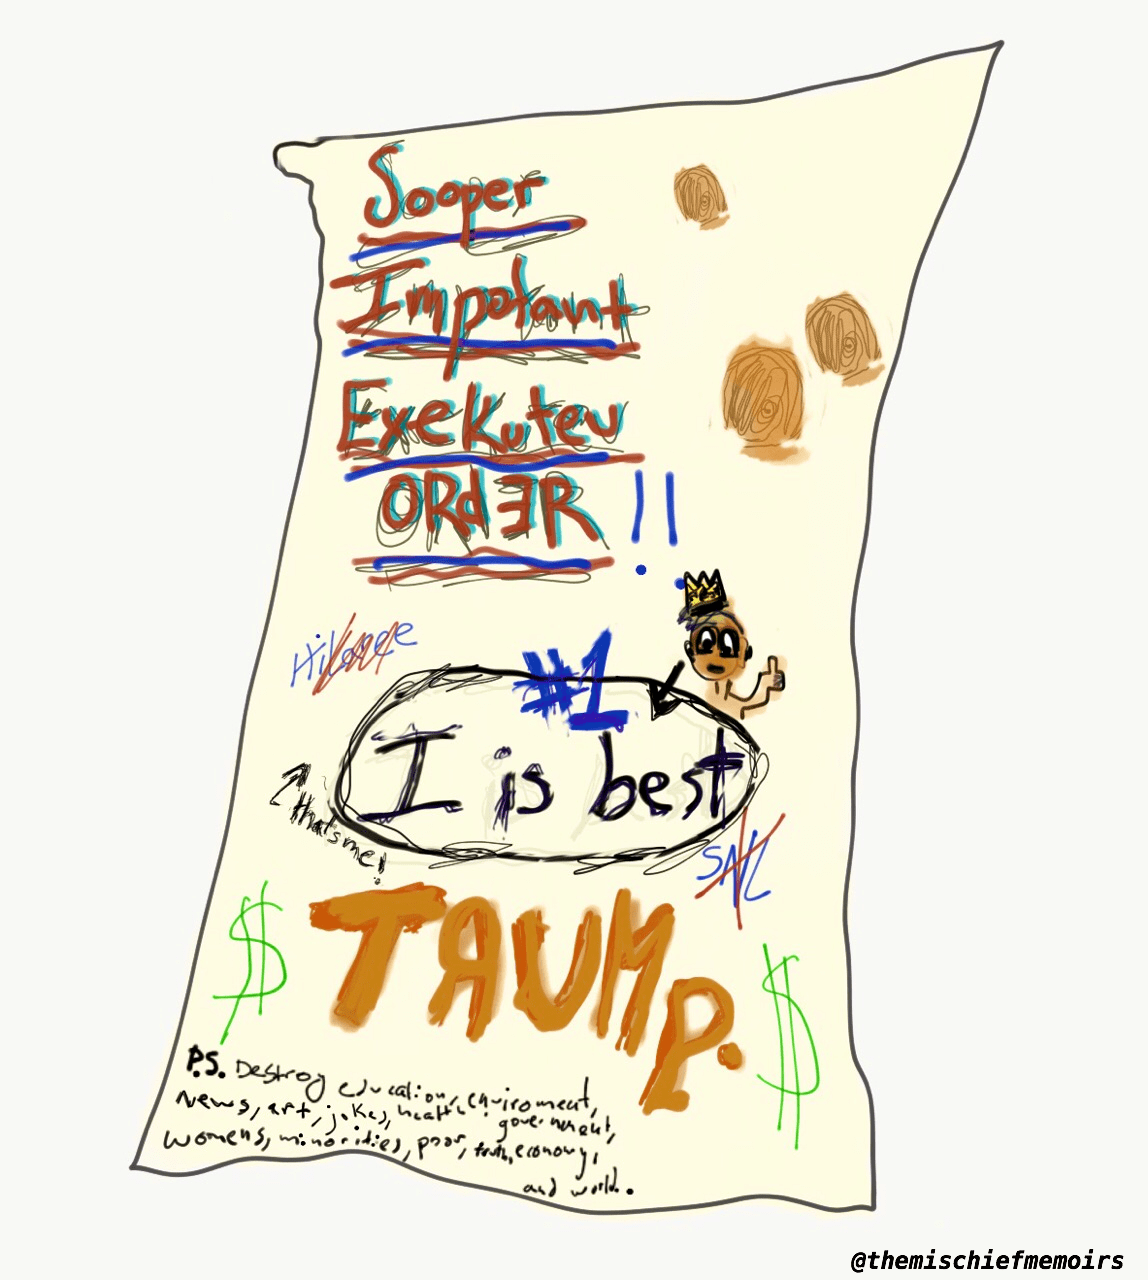 Sooper
Impotant
Exekutev
ORdER !!
Hilaree
#1
I is best
that's me!
SNL
TRUMP.
$ $
P.S. Destroy education, enviroment,
News, art, jokes, health, government,
womens, minorities, poor, truth, economy,
and world.
@themischiefmemoirs